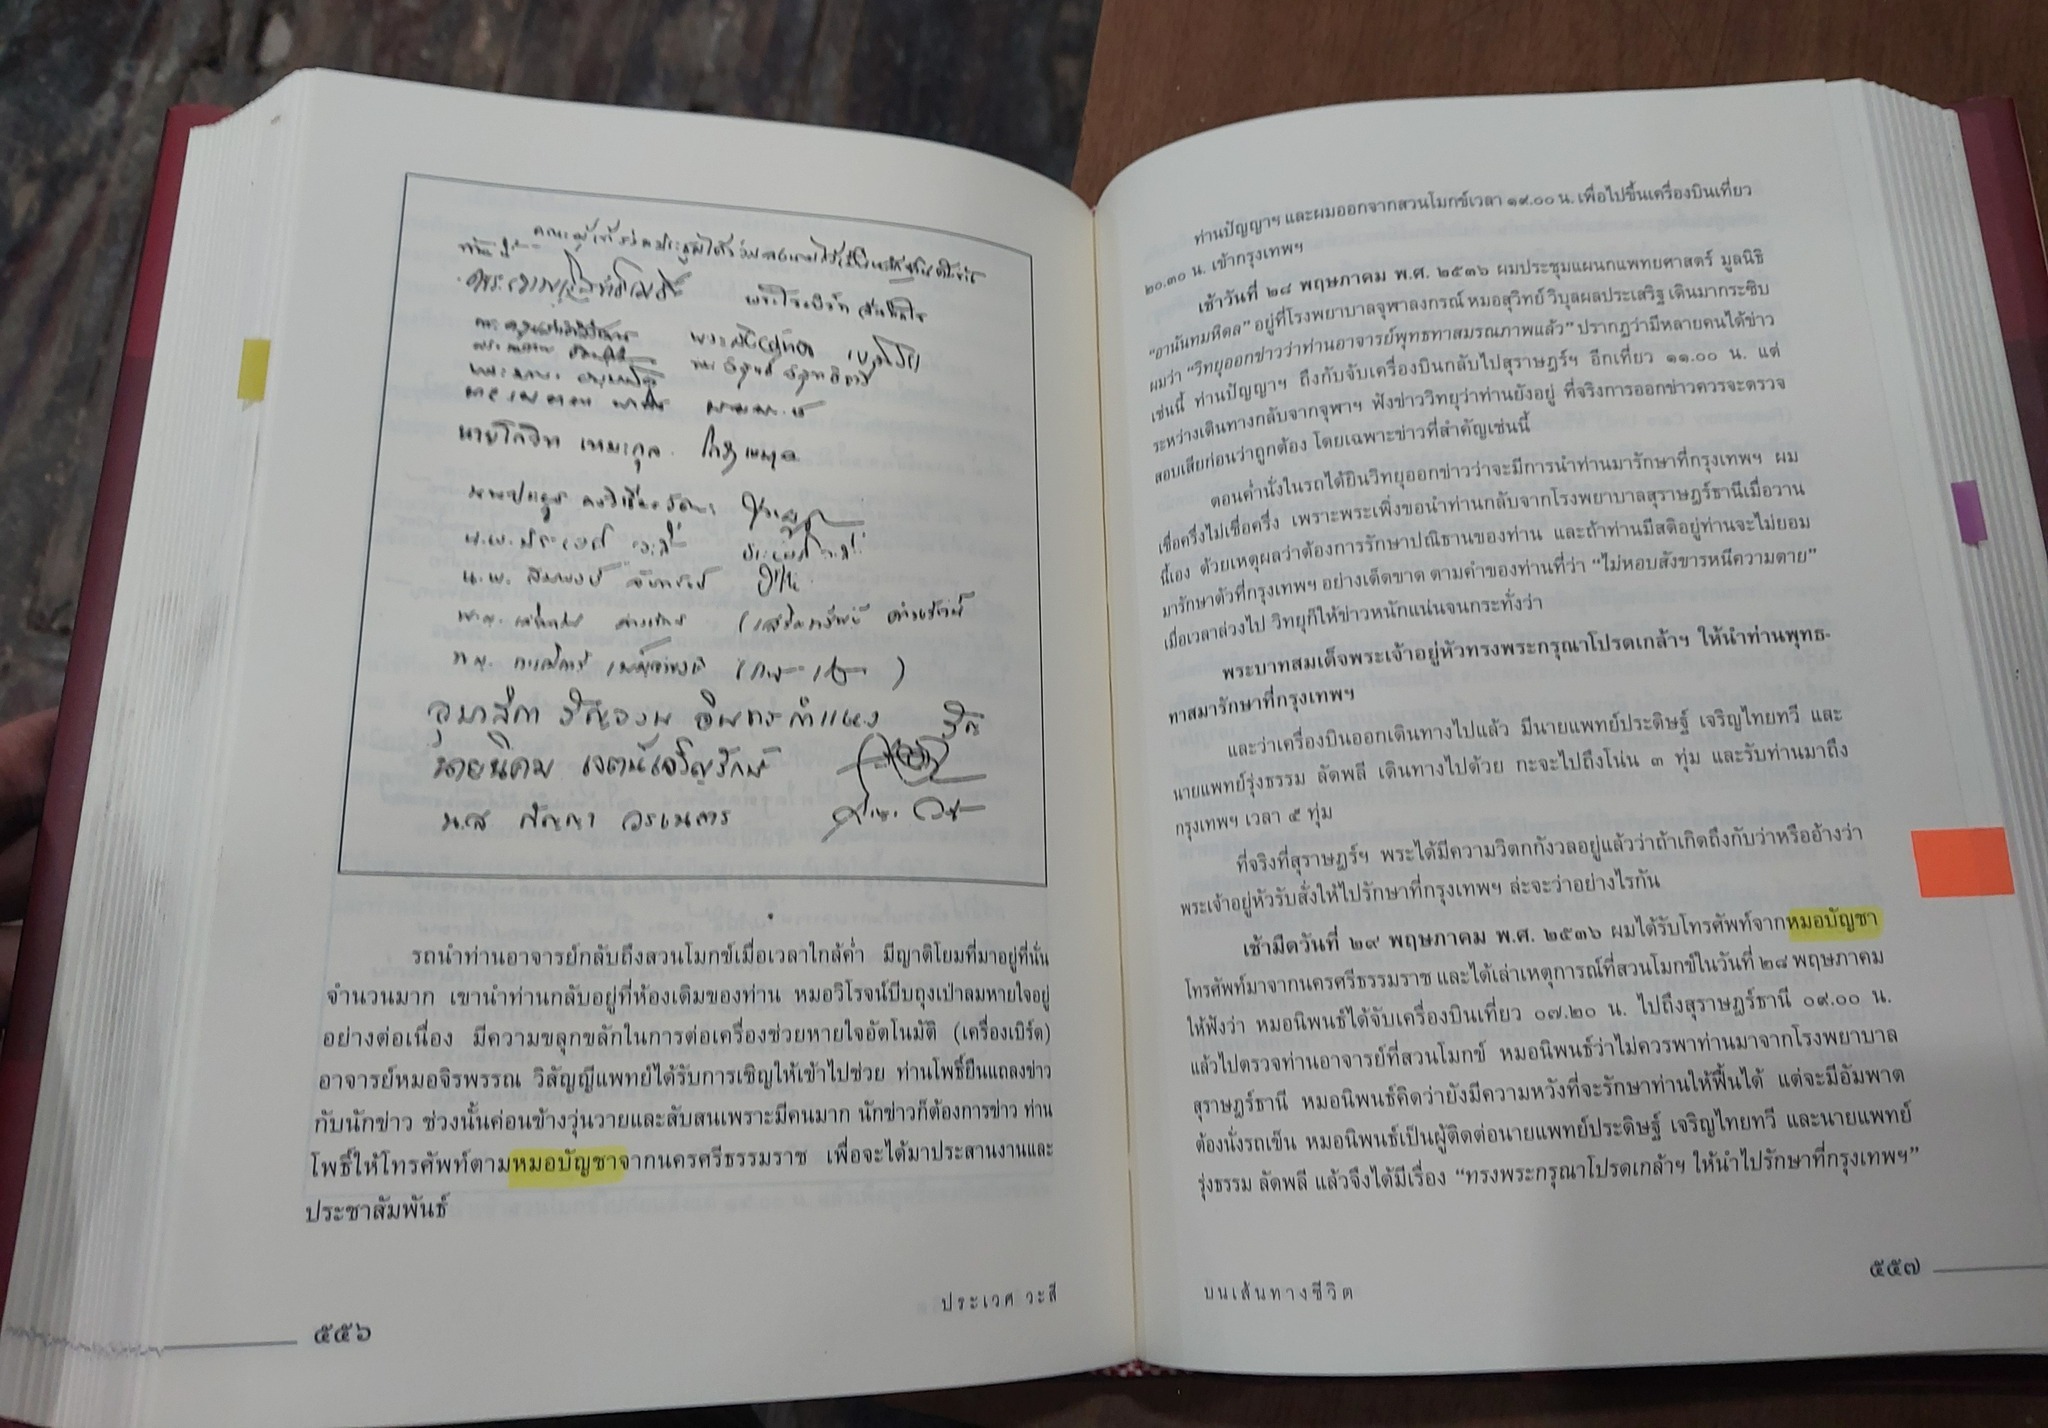 นายโกวิท เหมะกุล
อุบาสิกา รัญจวน อินทรกำแหง
นายนิคม เจตน์เจริญรักษ์
น.ส กัญญา วรเนตร
รถนำท่านอาจารย์กลับถึงสวนโมกข์เมื่อเวลาใกล้ค่ำ มีญาติโยมที่มาอยู่ที่นั่น
จำนวนมาก เขานำท่านกลับอยู่ที่ห้องเดิมของท่าน หมอวิโรจน์บีบถุงเป่าลมหายใจอยู่
อย่างต่อเนื่อง มีความขลุกขลักในการต่อเครื่องช่วยหายใจอัตโนมัติ (เครื่องเบิร์ด)
อาจารย์หมอจิรพรรณ วิสัญญีแพทย์ได้รับการเชิญให้เข้าไปช่วย ท่านโพธิ์ยืนแถลงข่าว
กับนักข่าว ช่วงนั้นค่อนข้างวุ่นวายและสับสนเพราะมีคนมาก นักข่าวก็ต้องการข่าว ท่าน
โพธิ์ให้โทรศัพท์ตามหมอบัญชาจากนครศรีธรรมราช เพื่อจะได้มาประสานงานและ
ประชาสัมพันธ์
ประเวศ วะสี
๕๕๖
ท่านปัญญาฯ และผมออกจากสวนโมกข์เวลา ๑๙.๐๐ น. เพื่อไปขึ้นเครื่องบินเที่ยว
๒๐.๓๐ น. เข้ากรุงเทพฯ
เช้าวันที่ ๒๘ พฤษภาคม พ.ศ. ๒๕๓๖ ผมประชุมแผนกแพทยศาสตร์ มูลนิธิ
“อานันทมหิดล” อยู่ที่โรงพยาบาลจุฬาลงกรณ์ หมอสุวิทย์ วิบุลผลประเสริฐ เดินมากระซิบ
ผมว่า “วิทยุออกข่าวว่าท่านอาจารย์พุทธทาสมรณภาพแล้ว” ปรากฏว่ามีหลายคนได้ข่าว
เช่นนี้ ท่านปัญญาฯ ถึงกับจับเครื่องบินกลับไปสุราษฎร์ฯ อีกเที่ยว ๑๑.๐๐ น. แต่
ระหว่างเดินทางกลับจากจุฬาฯ ฟังข่าววิทยุว่าท่านยังอยู่ ที่จริงการออกข่าวควรจะตรวจ
สอบเสียก่อนว่าถูกต้อง โดยเฉพาะข่าวที่สำคัญเช่นนี้
ตอนค่ำนั่งในรถได้ยินวิทยุออกข่าวว่าจะมีการนำท่านมารักษาที่กรุงเทพฯ ผม
เชื่อครึ่งไม่เชื่อครึ่ง เพราะพระเพิ่งขอนำท่านกลับจากโรงพยาบาลสุราษฎร์ธานีเมื่อวาน
นี้เอง ด้วยเหตุผลว่าต้องการรักษาปณิธานของท่าน และถ้าท่านมีสติอยู่ท่านจะไม่ยอม
มารักษาตัวที่กรุงเทพฯ อย่างเด็ดขาด ตามคำของท่านที่ว่า “ไม่หอบสังขารหนีความตาย”
เมื่อเวลาล่วงไป วิทยุก็ให้ข่าวหนักแน่นจนกระทั่งว่า
พระบาทสมเด็จพระเจ้าอยู่หัวทรงพระกรุณาโปรดเกล้าฯ ให้นำท่านพุทธ-
ทาสมารักษาที่กรุงเทพฯ
และว่าเครื่องบินออกเดินทางไปแล้ว มีนายแพทย์ประดิษฐ์ เจริญไทยทวี และ
นายแพทย์รุ่งธรรม ลัดพลี เดินทางไปด้วย กะจะไปถึงโน่น ๓ ทุ่ม และรับท่านมาถึง
กรุงเทพฯ เวลา ๕ ทุ่ม
ที่จริงที่สุราษฎร์ฯ พระได้มีความวิตกกังวลอยู่แล้วว่าถ้าเกิดถึงกับว่าหรืออ้างว่า
พระเจ้าอยู่หัวรับสั่งให้ไปรักษาที่กรุงเทพฯ ล่ะจะว่าอย่างไรกัน
เช้ามืดวันที่ ๒๙ พฤษภาคม พ.ศ. ๒๕๓๖ ผมได้รับโทรศัพท์จากหมอบัญชา
โทรศัพท์มาจากนครศรีธรรมราช และได้เล่าเหตุการณ์ที่สวนโมกข์ในวันที่ ๒๘ พฤษภาคม
ให้ฟังว่า หมอนิพนธ์ได้จับเครื่องบินเที่ยว ๐๗.๒๐ น. ไปถึงสุราษฎร์ธานี ๐๙.๐๐ น.
แล้วไปตรวจท่านอาจารย์ที่สวนโมกข์ หมอนิพนธ์ว่าไม่ควรพาท่านมาจากโรงพยาบาล
สุราษฎร์ธานี หมอนิพนธ์คิดว่ายังมีความหวังที่จะรักษาท่านให้ฟื้นได้ แต่จะมีอัมพาต
ต้องนั่งรถเข็น หมอนิพนธ์เป็นผู้ติดต่อนายแพทย์ประดิษฐ์ เจริญไทยทวี และนายแพทย์
รุ่งธรรม ลัดพลี แล้วจึงได้มีเรื่อง “ทรงพระกรุณาโปรดเกล้าฯ ให้นำไปรักษาที่กรุงเทพฯ”
๕๕๗
บนเส้นทางชีวิต